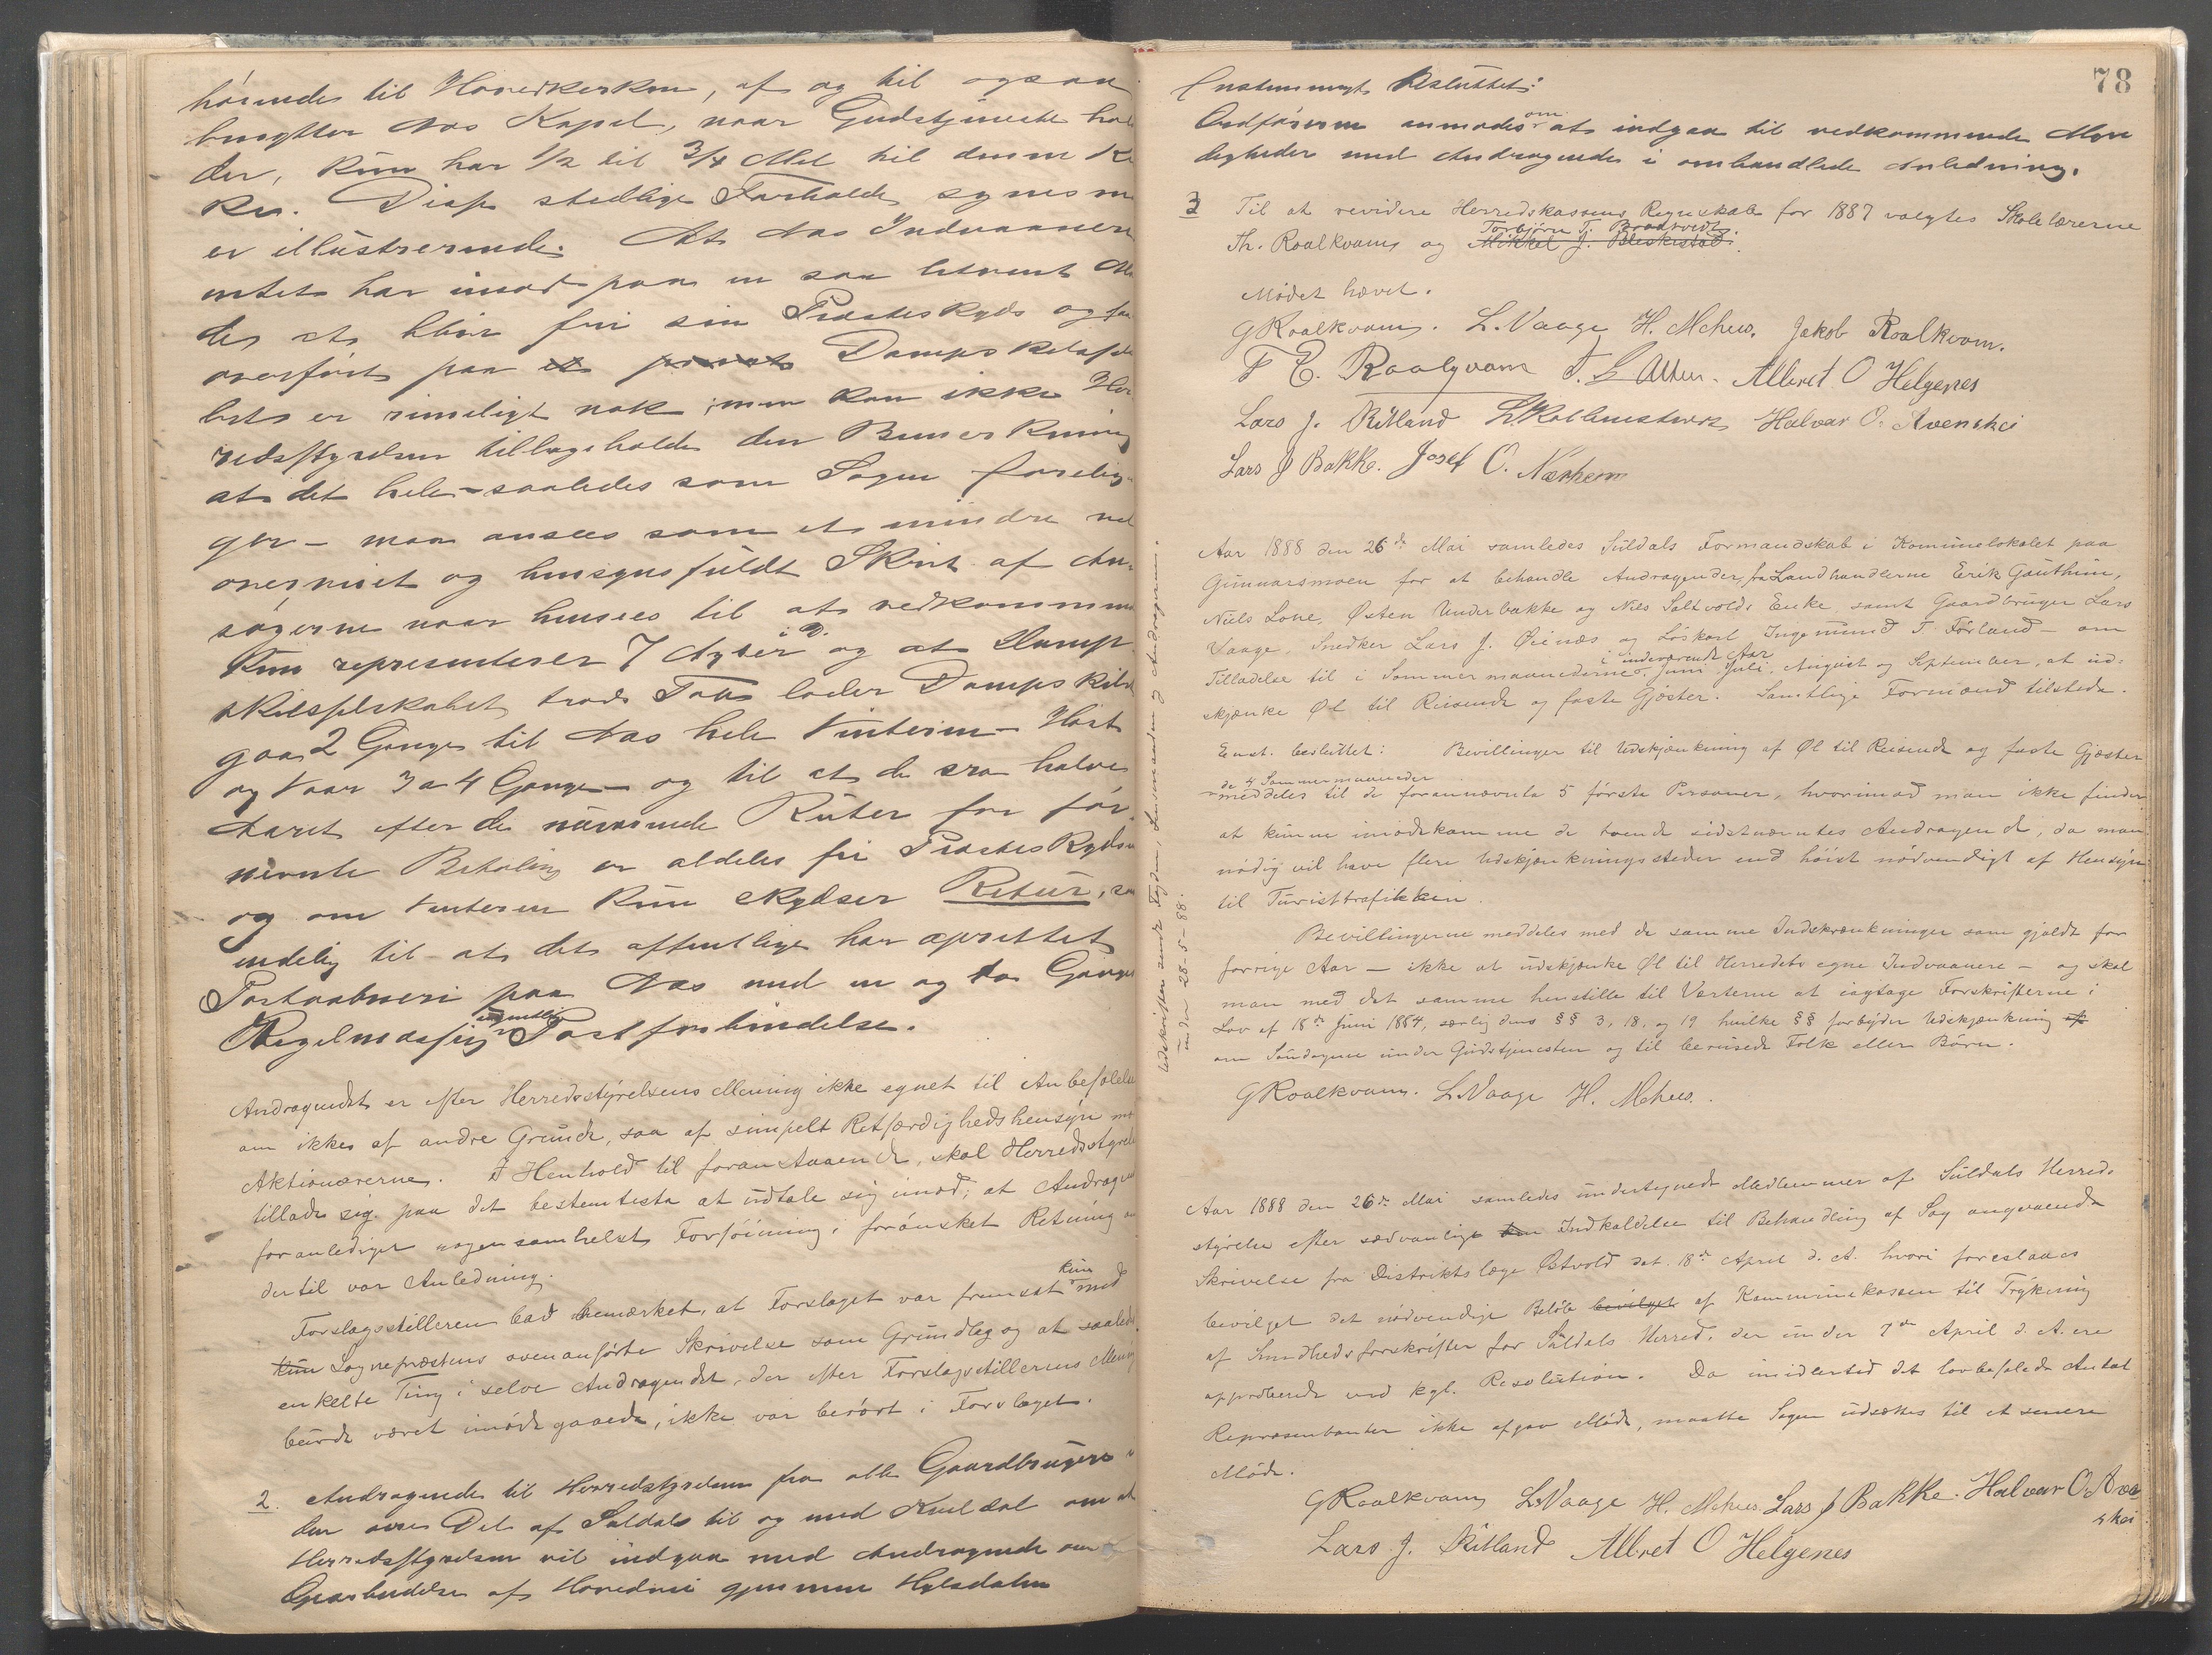 hørende til Hovedkerken, af og til ogsaa
benytter Næs Kapel, naar Gudstjeneste hol
der, kun har 1/2 til 3/4 Mil til denne Kir
ke. Disse stedlige Forholde synes m
er illustrerende. At Næs Indvaanere
intet har imod paa en saa letvent Maa
de at blive fri sin Presteskyds og faa
overført paa et privat Dampskibssel
skab er rimeligt nok; men kan ikke Her
redsstyrelsen tilbageholde den Bemerkning
at det hele – saaledes som Sagen forelig-
ger – maa ansees som et mindre vel
overveiet og hensynsfuldt Skrit af An-
søgerne naar hensees til at vedkommende
kun representerer 7 Aktier og at Damp
skibsselskabet trods Tab lader Dampskibet
gaa 2 Gange til Næs hele Vinteren – Høst
og Vaar 3 a 4 Gange – og til at de saa halve
Aaret efter de nuværende Ruter for før-
nevnte Betaling er aldeles fri Presteskydsen
og om Vinteren kun skydser Retur, sa
endelig til at det offentlige har oprettet
Postaabneri paa Næs med en og to Gange
Regelmæssig ugentlig Postforbindelse.
Andragendet er efter Herredsstyrelsens Mening ikke egnet til Anbefalelse
om ikke af andre Grunde, saa af simpelt Retfærdighedshensyn mod
Aktionærerne. I Henhold til foranstaaende, skal Herredsstyrelsen
tillade sig paa det bestemteste at udtale sig imod, at Andragendet
foranlediger nogensomhelst Forføining i forønsket Retning
dertil var Anledning.
Forslagsstilleren bad bemærket, at Forslaget var fremsat kun med
kun Sognepræstens ovenanførte Skrivelse som Grundlag og at saaledes
enkelte Ting i selve Andragendet, der efter Forslagsstillerens Mening
burde været imødegaaede, ikke var berørt i Forslaget.
2. Andragende til Herredsstyrelsen fra alle Gaardbrugere i
den øvre Del af Suldal til og med Kvildal om at
Herredsstyrelsen vil indgaa med Andragende om
Oparbeidelse af Hovedvei gjennem Hylsdalen
78
Enstemmigt Besluttet:
Ordføreren anmodes om at indgaa til vedkommende Myn
digheder med Andragende i omhandlede Anledning.
3 Til at revidere Herredskassens Regnskab for 1887 valgtes Skolelærerne
Th. Roalkvam og Mikkel J. Bleskestad. Torbjørn T. Bradtveit.
Mødet hævet.
G Roalkvam. L. Vaage H. Mehus. Jakob Roalkvam.
T E. Roalqvam Albret O Helgenes
Lars J. Ritland Halvar O. Avenskei
Lars J Bakke. Josef O. Nærheim
Aar 1888 den 26de Mai samledes Suldals Formandskab i Kommunelokalet paa
Gunnarsmoen for at behandle Andragender fra Landhandlerne Erik Gauthun,
Niels Lone, Østen Underbakke og Nils Saltvolds Enke, samt Gaardbruger Lars
Vaage, Snedker Lars J. Øienæs og Løskarl Ingemund T. Førland – om
Tilladelse til i Sommermaanederne i indeværende Aar Juni Juli, August og September, at ud-
skjænke Øl til Reisende og faste Gjæster. Samtlige Formænd tilstede.
Enst. besluttet: Bevillinger til Udskjænkning af Øl til Reisende og faste Gjæster
de 4 Sommermaaneder
meddeles til de forannævnte 5 første Personer, hvorimod man ikke finder
at kunne imødekomme de tvende sidstnævntes Andragende, da man
nødig vil have flere Udskjænkningssteder end høist nødvendigt af Hensyn
til Turisttrafikken.
Bevillingerne meddeles med de samme Indskrænkninger som gjaldt for
forrige Aar – ikke at udskjænke Øl til Herredets egne Indvaanere – og skal
man med det samme henstille til Værterne at iagtage Forskrifterne i
Lov af 18de Juni 1884, særlig dens §§ 3, 18, og 19 hvilke §§ forbyder Udskjænkning af
om Søndagene under Gudstjenesten og til berusede Folk eller Børn.
G Roalkvam. L. Vaage H. Mehus.
Udskrifter sendt Fogden, Lensmanden og Andragerne
under 28-5-88.
Aar 1888 den 26de Mai samledes undertegnede Medlemmer af Suldals Herreds
styrelse efter sædvanlige Indkaldelse til Behandling af Sag angaaende
Skrivelse fra Distriktslæge Østvold dat. 18de April d. A. hvori foreslaaes
bevilget det nødvendige Beløb bevilget af Kommunekassen til Trykning
af Sundhedsforskrifter for Suldals Herred, der under 7de April d. A. ere
approberede ved kgl. Resolution. Da imidlertid det lovbefalede Antal
Repræsentanter ikke afgav Møde, maatte Sagen udsættes til et senere
Møde.
G Roalkvam L. Vaage H. Mehus. Lars J Bakke. Halvar O. Aven
skei
Lars J. Ritland Albret O Helgenes